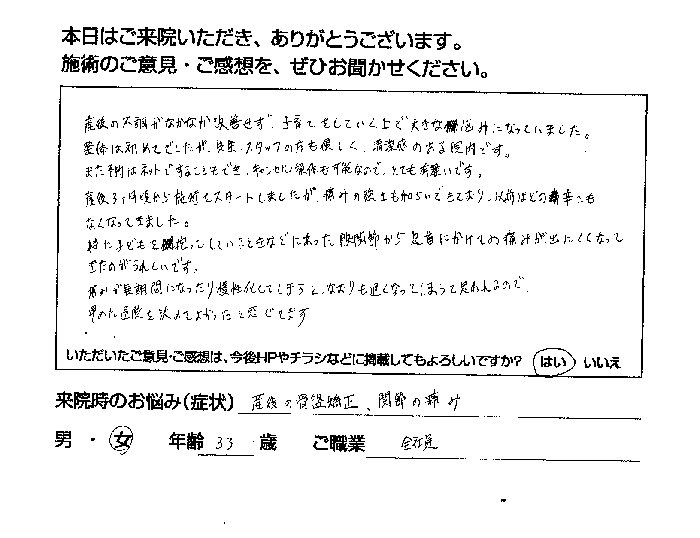 本日はご来院いただき、ありがとうございます。
施術のご意見・ご感想を、ぜひお聞かせください。
産後の不調がなかなか改善せず、子育てをしていく上で大きな悩みになっていました。
整体は初めてでしたが、先生、スタッフの方も優しく、清潔感のある院内です。
また予約はネットですることもでき、キャンセル待ちも可能なので、とても有難いです。
産後3ヶ月頃から施術をスタートしましたが、痛みの
なくなってきました。
特に子どもを抱っこしていときなどにあった股関節から足首にかけての痛みが出にくくなって
きたのがうれしいです。
痛みが長期間になったり慢性化してしまうと、なおりも遅くなってしまうと思われるので、
早めに医院を決めてよかったと感じてます
いただいたご意見・ご感想は、今後HPやチラシなどに掲載してもよろしいですか? はい いいえ
来院時のお悩み(症状) 産後の骨盤矯正、関節の痛み
男 ・ 女 年齢 33 歳 ご職業 会社員